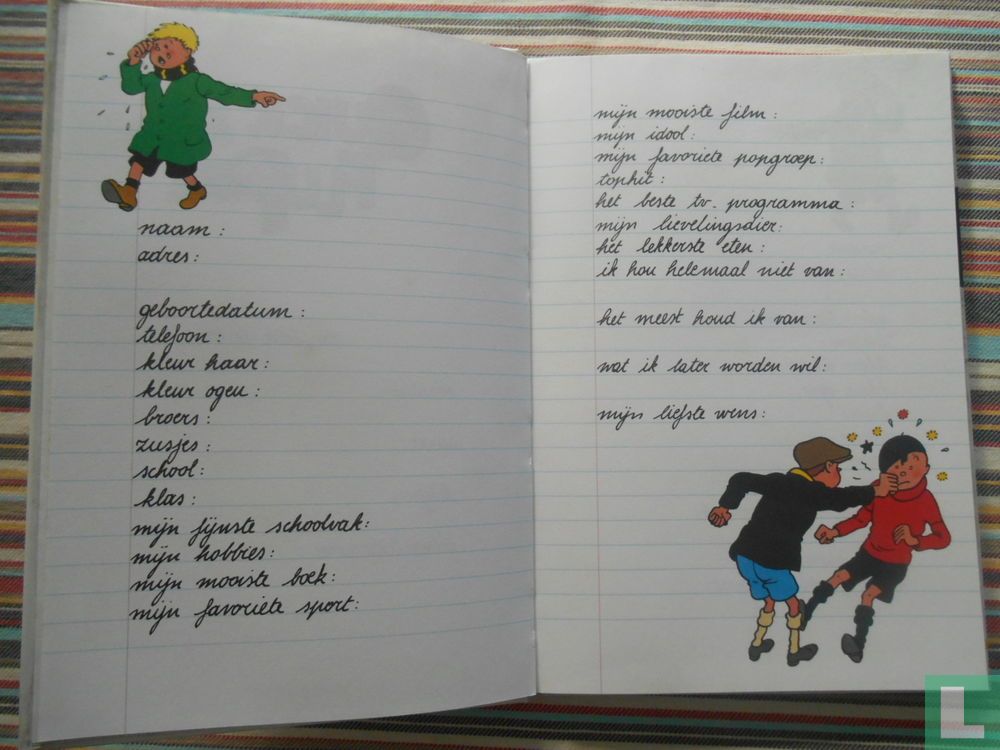 naam :
adres :
geboortedatum :
telefoon :
kleur haar :
kleur ogen :
broers :
zusjes :
school :
klas :
mijn fijnste schoolvak :
mijn hobbies :
mijn mooiste boek :
mijn favoriete sport :
mijn mooiste film :
mijn idool :
mijn favoriete popgroep :
tophit :
het beste tv. programma :
mijn lievelingsdier :
het lekkerste eten :
ik hou helemaal niet van :
het meest houd ik van :
wat ik later worden wil :
mijn liefste wens :
L